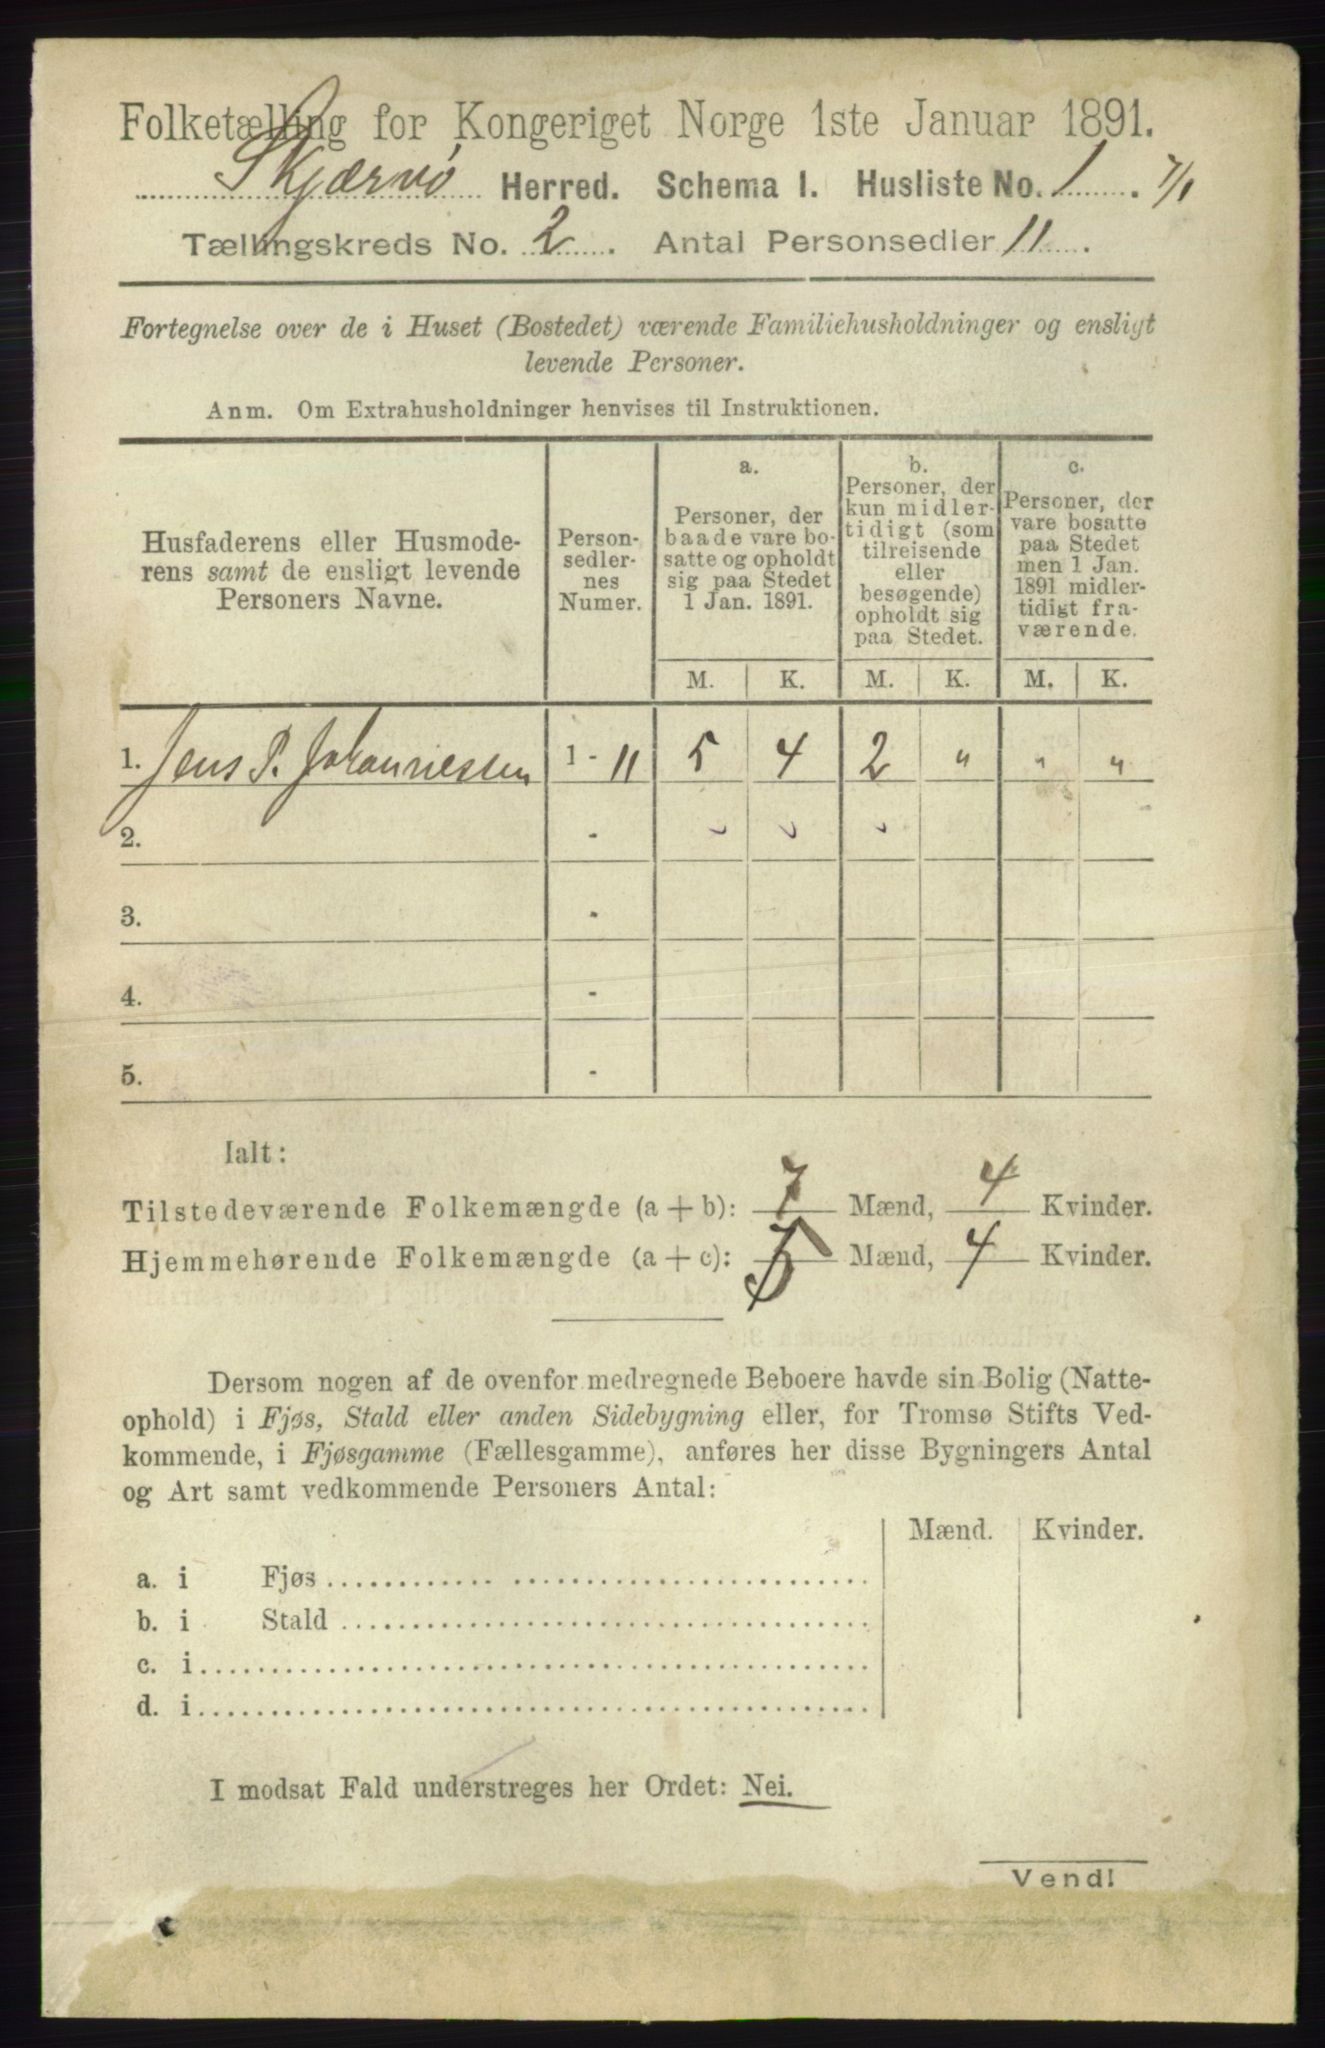 Folketælling for Kongeriget Norge 1ste Januar 1891.
Skjærvø Herred. Schema I. Husliste No. 1. 7/1
Tællingskreds No. 2. Antal Personsedler 11.
Fortegnelse over de i Huset (Bostedet) værende Familiehusholdninger og ensligt
levende Personer.
Anm. Om Extrahusholdninger henvises til Instruktionen.
Husfaderens eller Husmode-
rens samt de ensligt levende
Personers Navne.
Person-
sedler-
nes
Numer.
a.
Personer, der
baade vare bo-
satte og opholdt
sig paa Stedet
1 Jan. 1891.
b.
Personer, der
kun midler-
tidigt (som
tilreisende
eller
besøgende)
opholdt sig
paa Stedet.
c.
Personer, der
vare bosatte
paa Stedet
men 1 Jan.
1891 midler-
tidigt fra-
værende.
M. K. M. K. M. K.
1. Jens P. Johannessen 1 - 11 5 4 2 " " "
2. -
3. -
4. -
5. -
Ialt:
Tilstedeværende Folkemængde (a + b): 7 Mænd, 4 Kvinder.
Hjemmehørende Folkemængde (a + c): 5 Mænd, 4 Kvinder.
Dersom nogen af de ovenfor medregnede Beboere havde sin Bolig (Natte-
ophold) i Fjøs, Stald eller anden Sidebygning eller, for Tromsø Stifts Ved-
kommende, i Fjøsgamme (Fællesgamme), anføres her disse Bygningers Antal
og Art samt vedkommende Personers Antal:
Mænd. Kvinder.
a. i Fjøs
b. i Stald
c. i
d. i
I modsat Fald understreges her Ordet: Nei.
Vend!